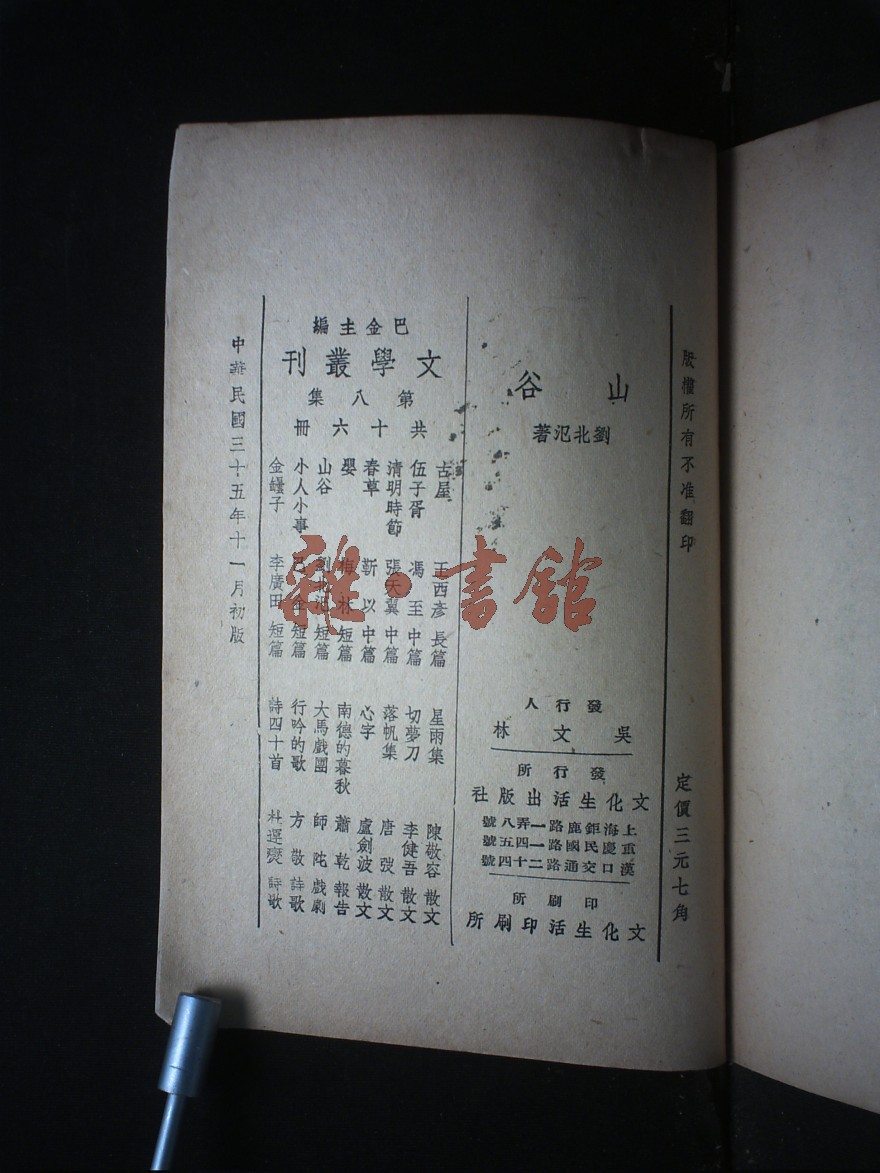 版權所有不准翻印
定價三元七角
山谷
劉北汜著
發行人
吳文林
發行所
文化生活出版社
上海鉅鹿路一弄八號
重慶民國路一四五號
漢口交通路二十四號
印刷所
文化生活印刷所
巴金主編
文學叢刊
第八集
共十六冊
古屋 王西彥 長篇
伍子胥 馮至 中篇
清明時節 張天翼 中篇
春草 靳以 中篇
嬰 梅林 短篇
山谷 劉北汜 短篇
小人小事 巴金 短篇
金罎子 李廣田 短篇
星雨集 陳敬容 散文
切夢刀 李健吾 散文
落帆集 唐弢 散文
心字 盧劍波 散文
南德的暮秋 蕭乾 報告
大馬戲團 師陀 戲劇
行吟的歌 方敬 詩歌
詩四十首 杜運燮 詩歌
中華民國三十五年十一月初版
雜·書館